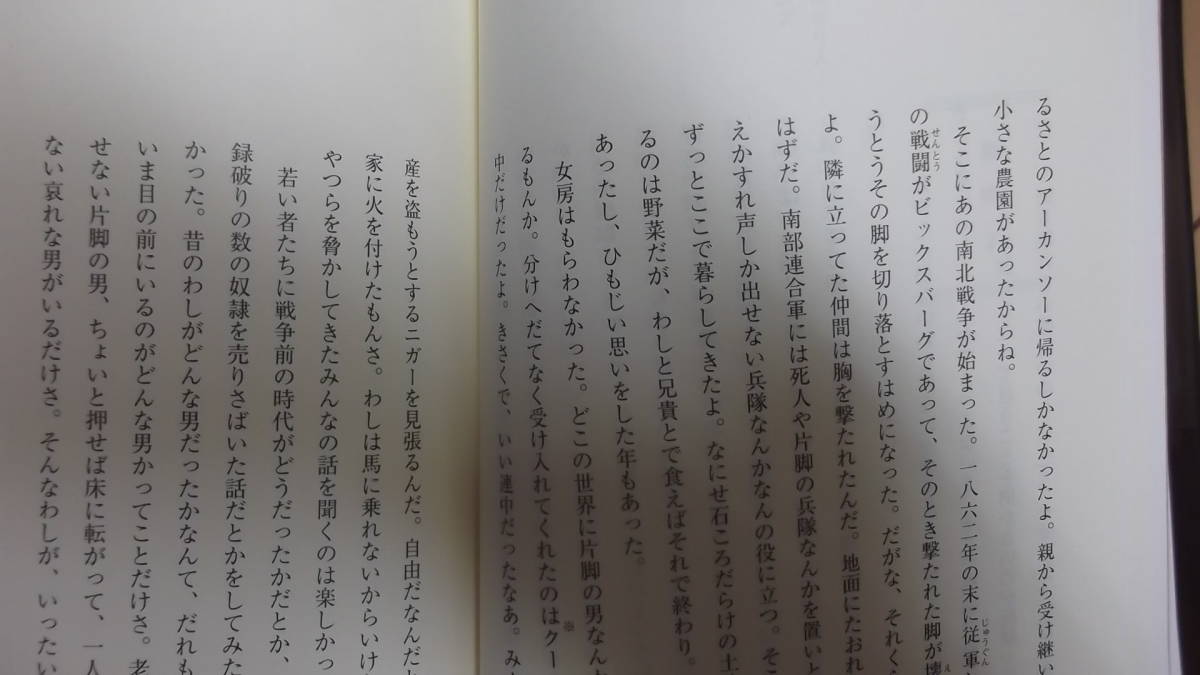 るさとのアーカンソーに帰るしかなかったよ。親から受け継い
小さな農園があったからね。
そこにあの南北戦争が始まった。一八六二年の末に従軍
じゅうぐん
の戦闘がビックスバーグであって、そのとき撃たれた脚が壊
せんとう
え
うとうその脚を切り落とすはめになった。だがな、それく
よ。隣に立ってた仲間は胸を撃たれたんだ。地面にたおれ
はずだ。南部連合軍には死人や片脚の兵隊なんかを置いと
えかすれ声しか出せない兵隊なんかなんの役に立つ。そこ
ずっとここで暮らしてきたよ。なにせ石ころだらけの土
るのは野菜だが、わしと兄貴とで食えばそれで終わり。
あったし、ひもじい思いをした年もあった。
女房はもらわなかった。どこの世界に片脚の男なん
るもんか。分けへだてなく受け入れてくれたのはクー
※
中だけだったよ。きさくで、いい連中だったなあ。み
産を盗もうとするニガーを見張るんだ。自由だなんだと
家に火を付けたもんさ。わしは馬に乗れないからいけ
やつらを脅かしてきたみんなの話を聞くのは楽しかっ
若い者たちに戦争前の時代がどうだったかだとか、
録破りの数の奴隷を売りさばいた話だとかをしてみた
かった。昔のわしがどんな男だったかなんて、だれも
いま目の前にいるのがどんな男かってことだけさ。老
せない片脚の男、ちょいと押せば床に転がって、一人
ない哀れな男がいるだけさ。そんなわしが、いったい